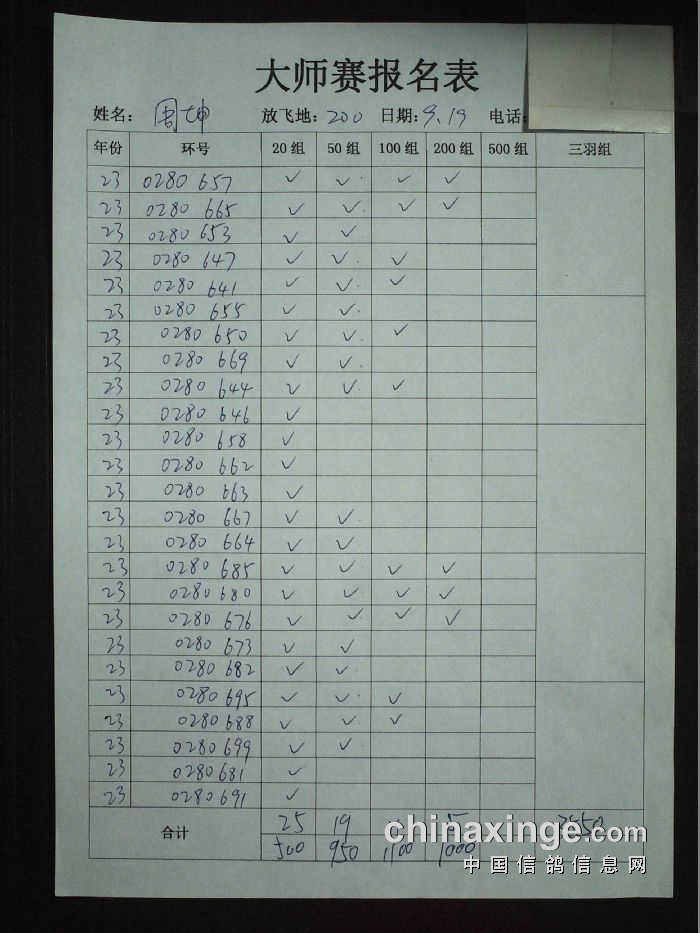 大师赛报名表
姓名: 周坤 放飞地: 200 日期: 9.19 电话:
年份 环号 20组 50组 100组 200组 500组 三羽组
23 0280 657 ✓ ✓ ✓ ✓
23 0280 665 ✓ ✓ ✓ ✓
23 0280 653 ✓ ✓
23 0280 647 ✓ ✓ ✓
23 0280 641 ✓ ✓ ✓
23 0280 655 ✓ ✓
23 0280 650 ✓ ✓ ✓
23 0280 669 ✓ ✓
23 0280 644 ✓ ✓ ✓
23 0280 646 ✓
23 0280 658 ✓
23 0280 662 ✓
23 0280 663 ✓
23 0280 667 ✓ ✓
23 0280 664 ✓ ✓
23 0280 685 ✓ ✓ ✓ ✓
23 0280 680 ✓ ✓ ✓ ✓
23 0280 676 ✓ ✓ ✓ ✓
23 0280 673 ✓ ✓
23 0280 682 ✓ ✓
23 0280 695 ✓ ✓ ✓
23 0280 688 ✓ ✓ ✓
23 0280 699 ✓ ✓
23 0280 681 ✓
23 0280 691 ✓
合计 25 19 3550
500 950 1100 1000
chinaxinge.com
中国信鸽信息网